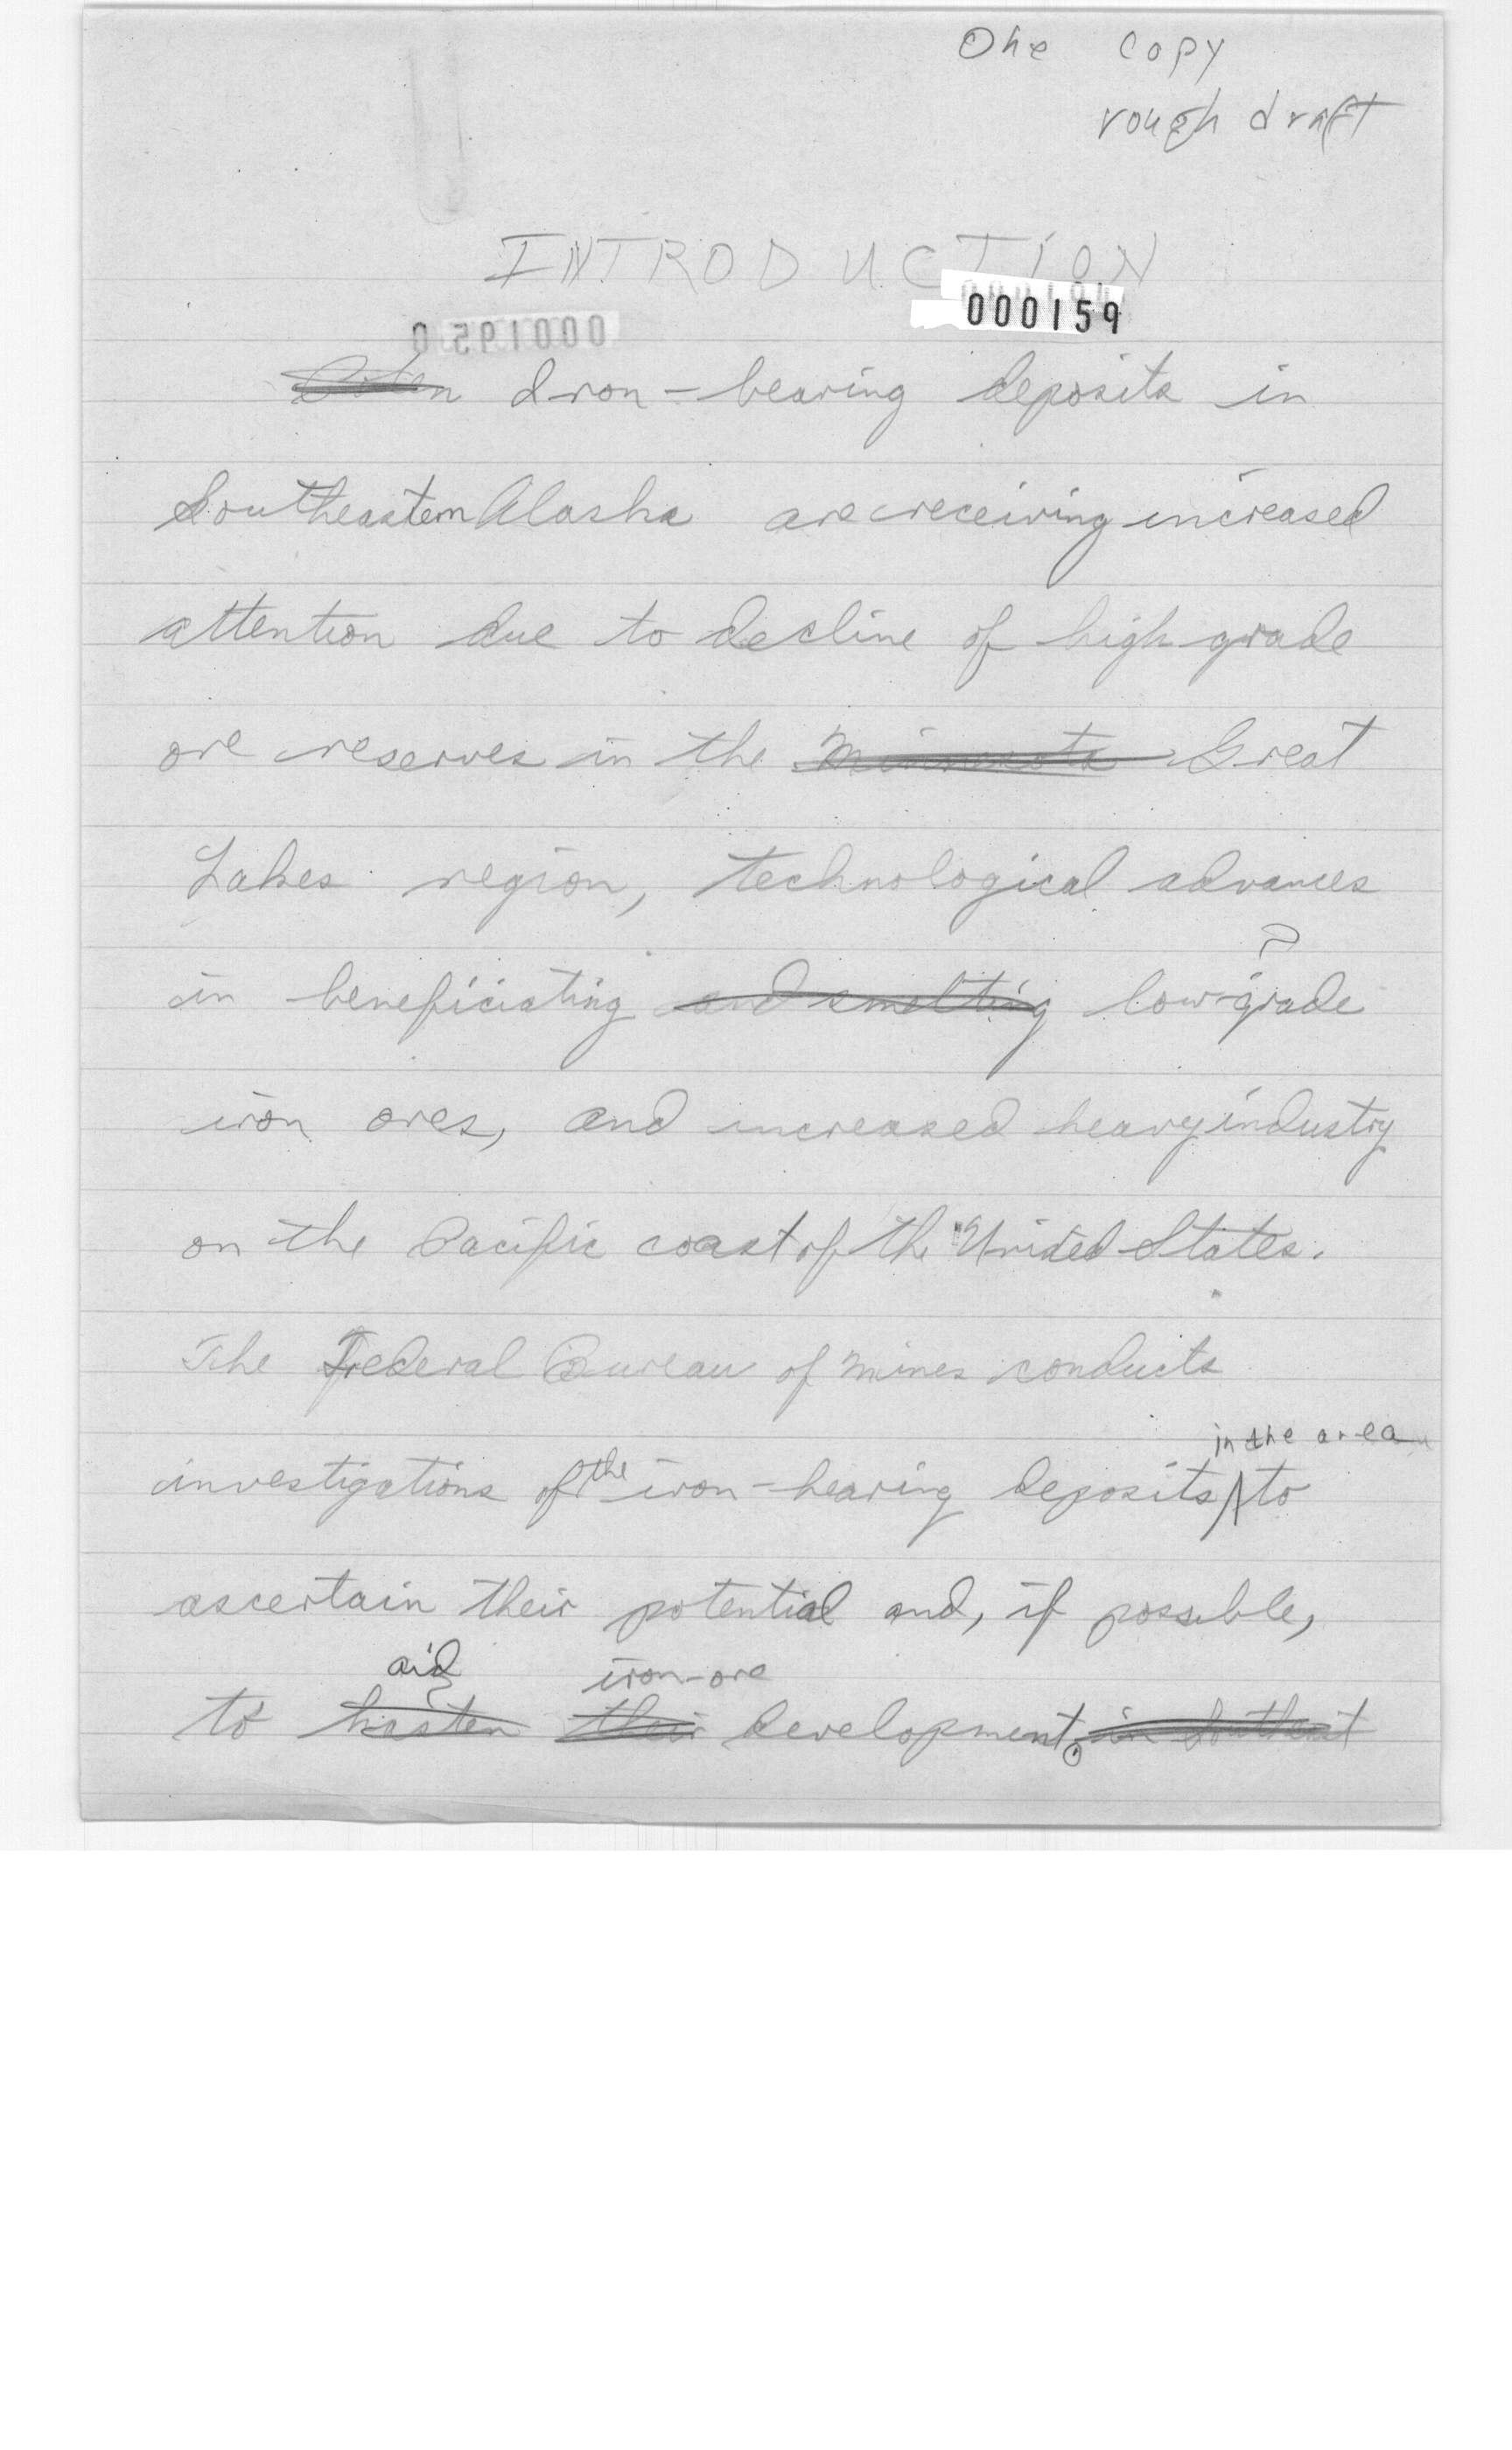 One copy
rough draft
INTRODUCTION
000159
Iron-bearing deposits in
Southeastern Alaska are receiving increased
attention due to decline of high grade
ore reserves in the Minnesota Great
Lakes region, technological advances
?
in beneficiating and smelting low-grade
iron ores, and increased heavy industry
on the Pacific coast of the United States.
The Federal Bureau of Mines conducts
in the area
investigations of the iron-bearing deposits to
ascertain their potential and, if possible,
aid iron-ore
to hasten their development. in Southeast